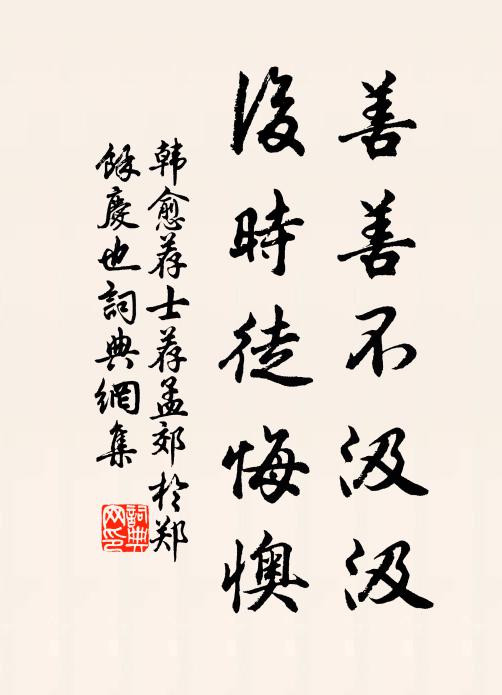 善善不汲汲
後時徒悔懊
韩愈荐士荐孟郊於郑
餘慶也詞典網集
詞典网印